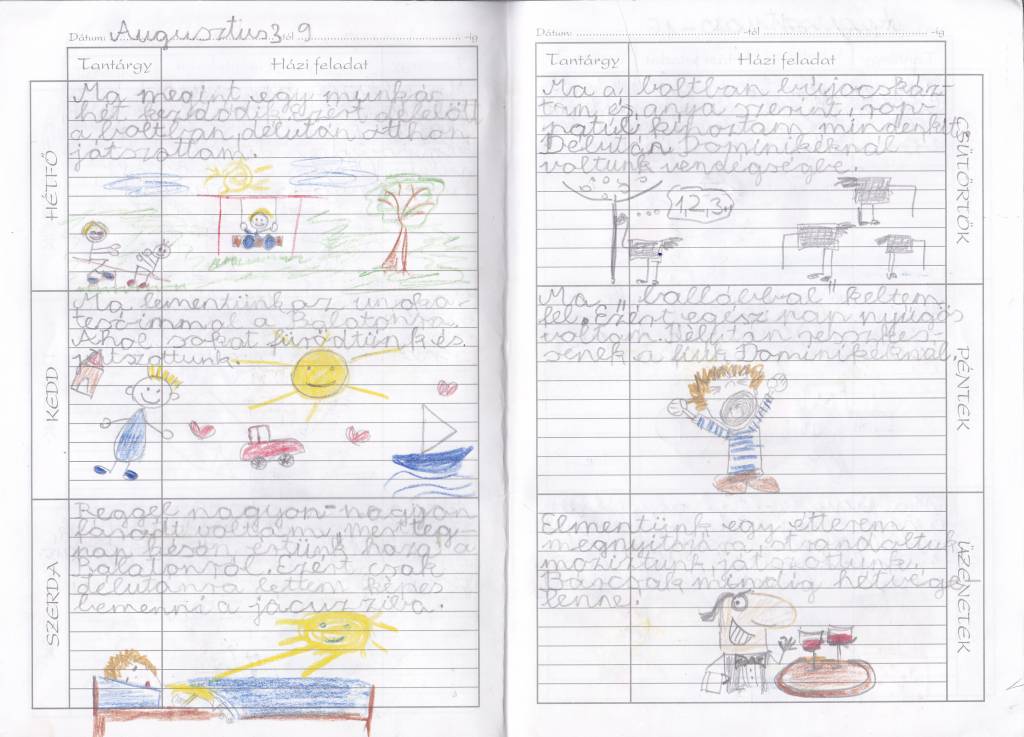 Dátum: Augusztus 3 -tól 9 -ig
Tantárgy Házi feladat
HÉTFŐ
Ma megint egy munkás
hét kezdődik, ezért délelőtt
a boltban, délután otthon
játszottam.
KEDD
Ma lementünk az unoka-
tesóimmal a Balatonra.
Ahol sokat fürödtünk és
játszottunk.
SZERDA
Reggel nagyon-nagyon
fáradt voltam, mert teg-
nap későn értünk haza a
Balatonról. Ezért csak
délutánra lettem képes
bemenni a jacuzziba.
Dátum: -tól -ig
Tantárgy Házi feladat
CSÜTÖRTÖK
Ma a boltban bújócskáz-
tam és anya szerint rop-
pantul kínoztam mindenkit.
Délután Dominikéknál
voltunk vendégségbe.
1,2,3..
PÉNTEK
Ma "ballábbal" keltem
fel. Ezért egész nap nyűgös
voltam.
a fiúk Dominikéknál.
ÜZENETEK
Elmentünk egy étterem
megnyitóra, strandoltunk,
moziztunk, játszottunk.
Bárcsak mindig hétvége
lenne.